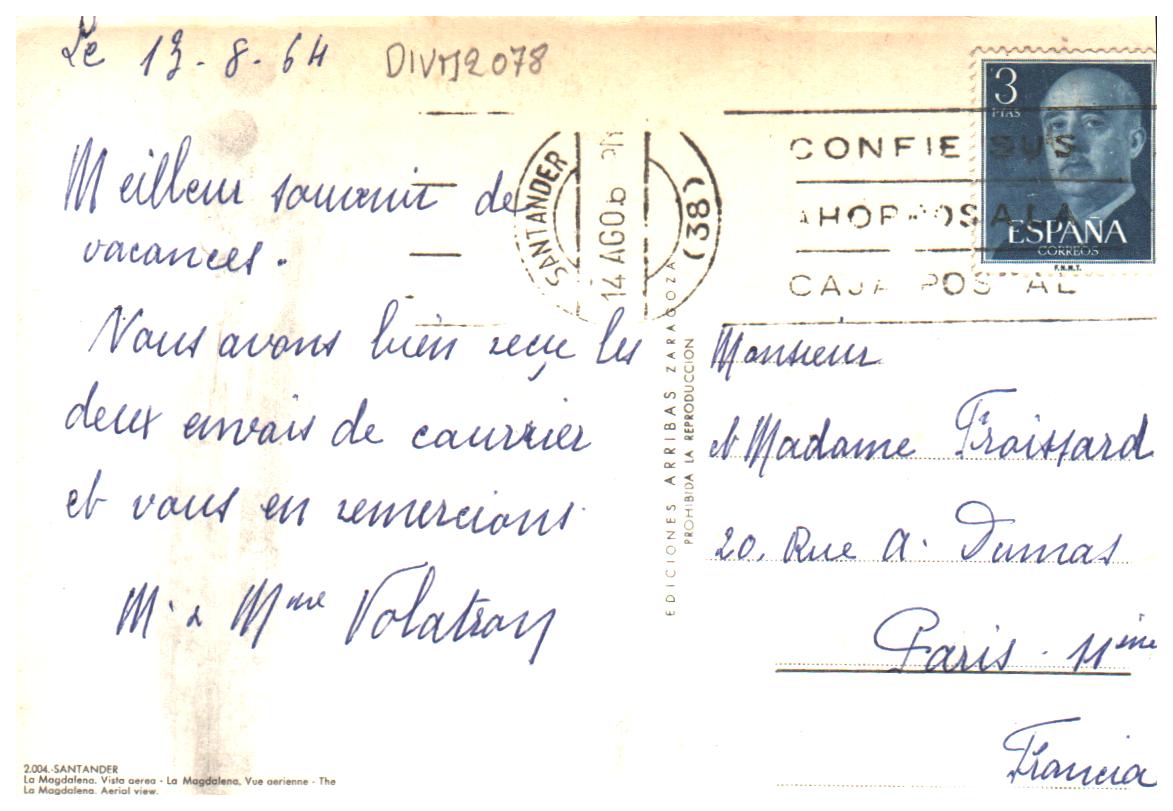 Le 13.8.64
DIVM2078
Meilleur souvenir de
vacances.
Nous avons bien reçu les
deux envois de courrier
et vous en remercions
M. & Mme Volatron
2.004.-SANTANDER
La Magdalena. Vista aerea - La Magdalena, Vue aerienne - The
La Magdalena. Aerial view.
EDICIONES ARRIBAS ZARAGOZA
PROHIBIDA LA REPRODUCCION
SANTANDER
14 AGO
(38)
CONFIE SUS
AHORROS A LA
CAJA POSTAL
3
PTAS
ESPAÑA
CORREOS
F.N.M.T.
Monsieur
et Madame Froissard
20, Rue A. Dumas
Paris. 11ème
Francia